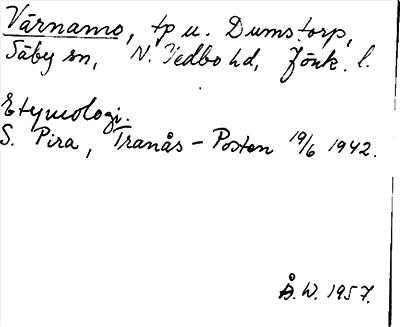 Värnamo, tp u. Dumstorp,
Säby sn, N. Vedbo hd, Jönk. l.
Etymologi.
S. Pira, Tranås-Posten 19/6 1942.
Å.W. 1957.